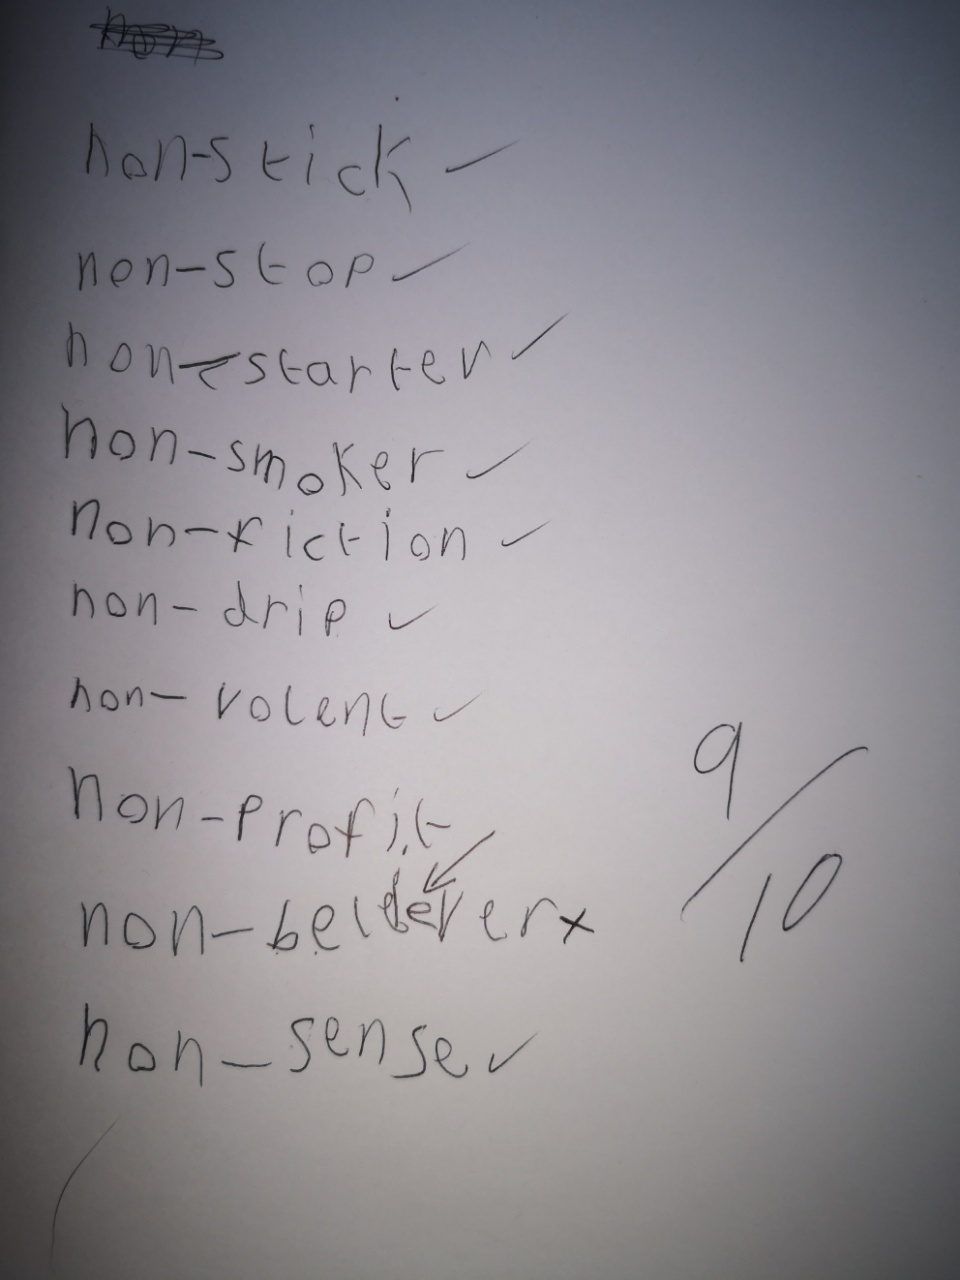 non
non-stick ✓
non-stop ✓
non-starter ✓
non-smoker ✓
non-fiction ✓
non-drip ✓
non-volent ✓
non-profit
non-believer x
non-sense ✓
9/10